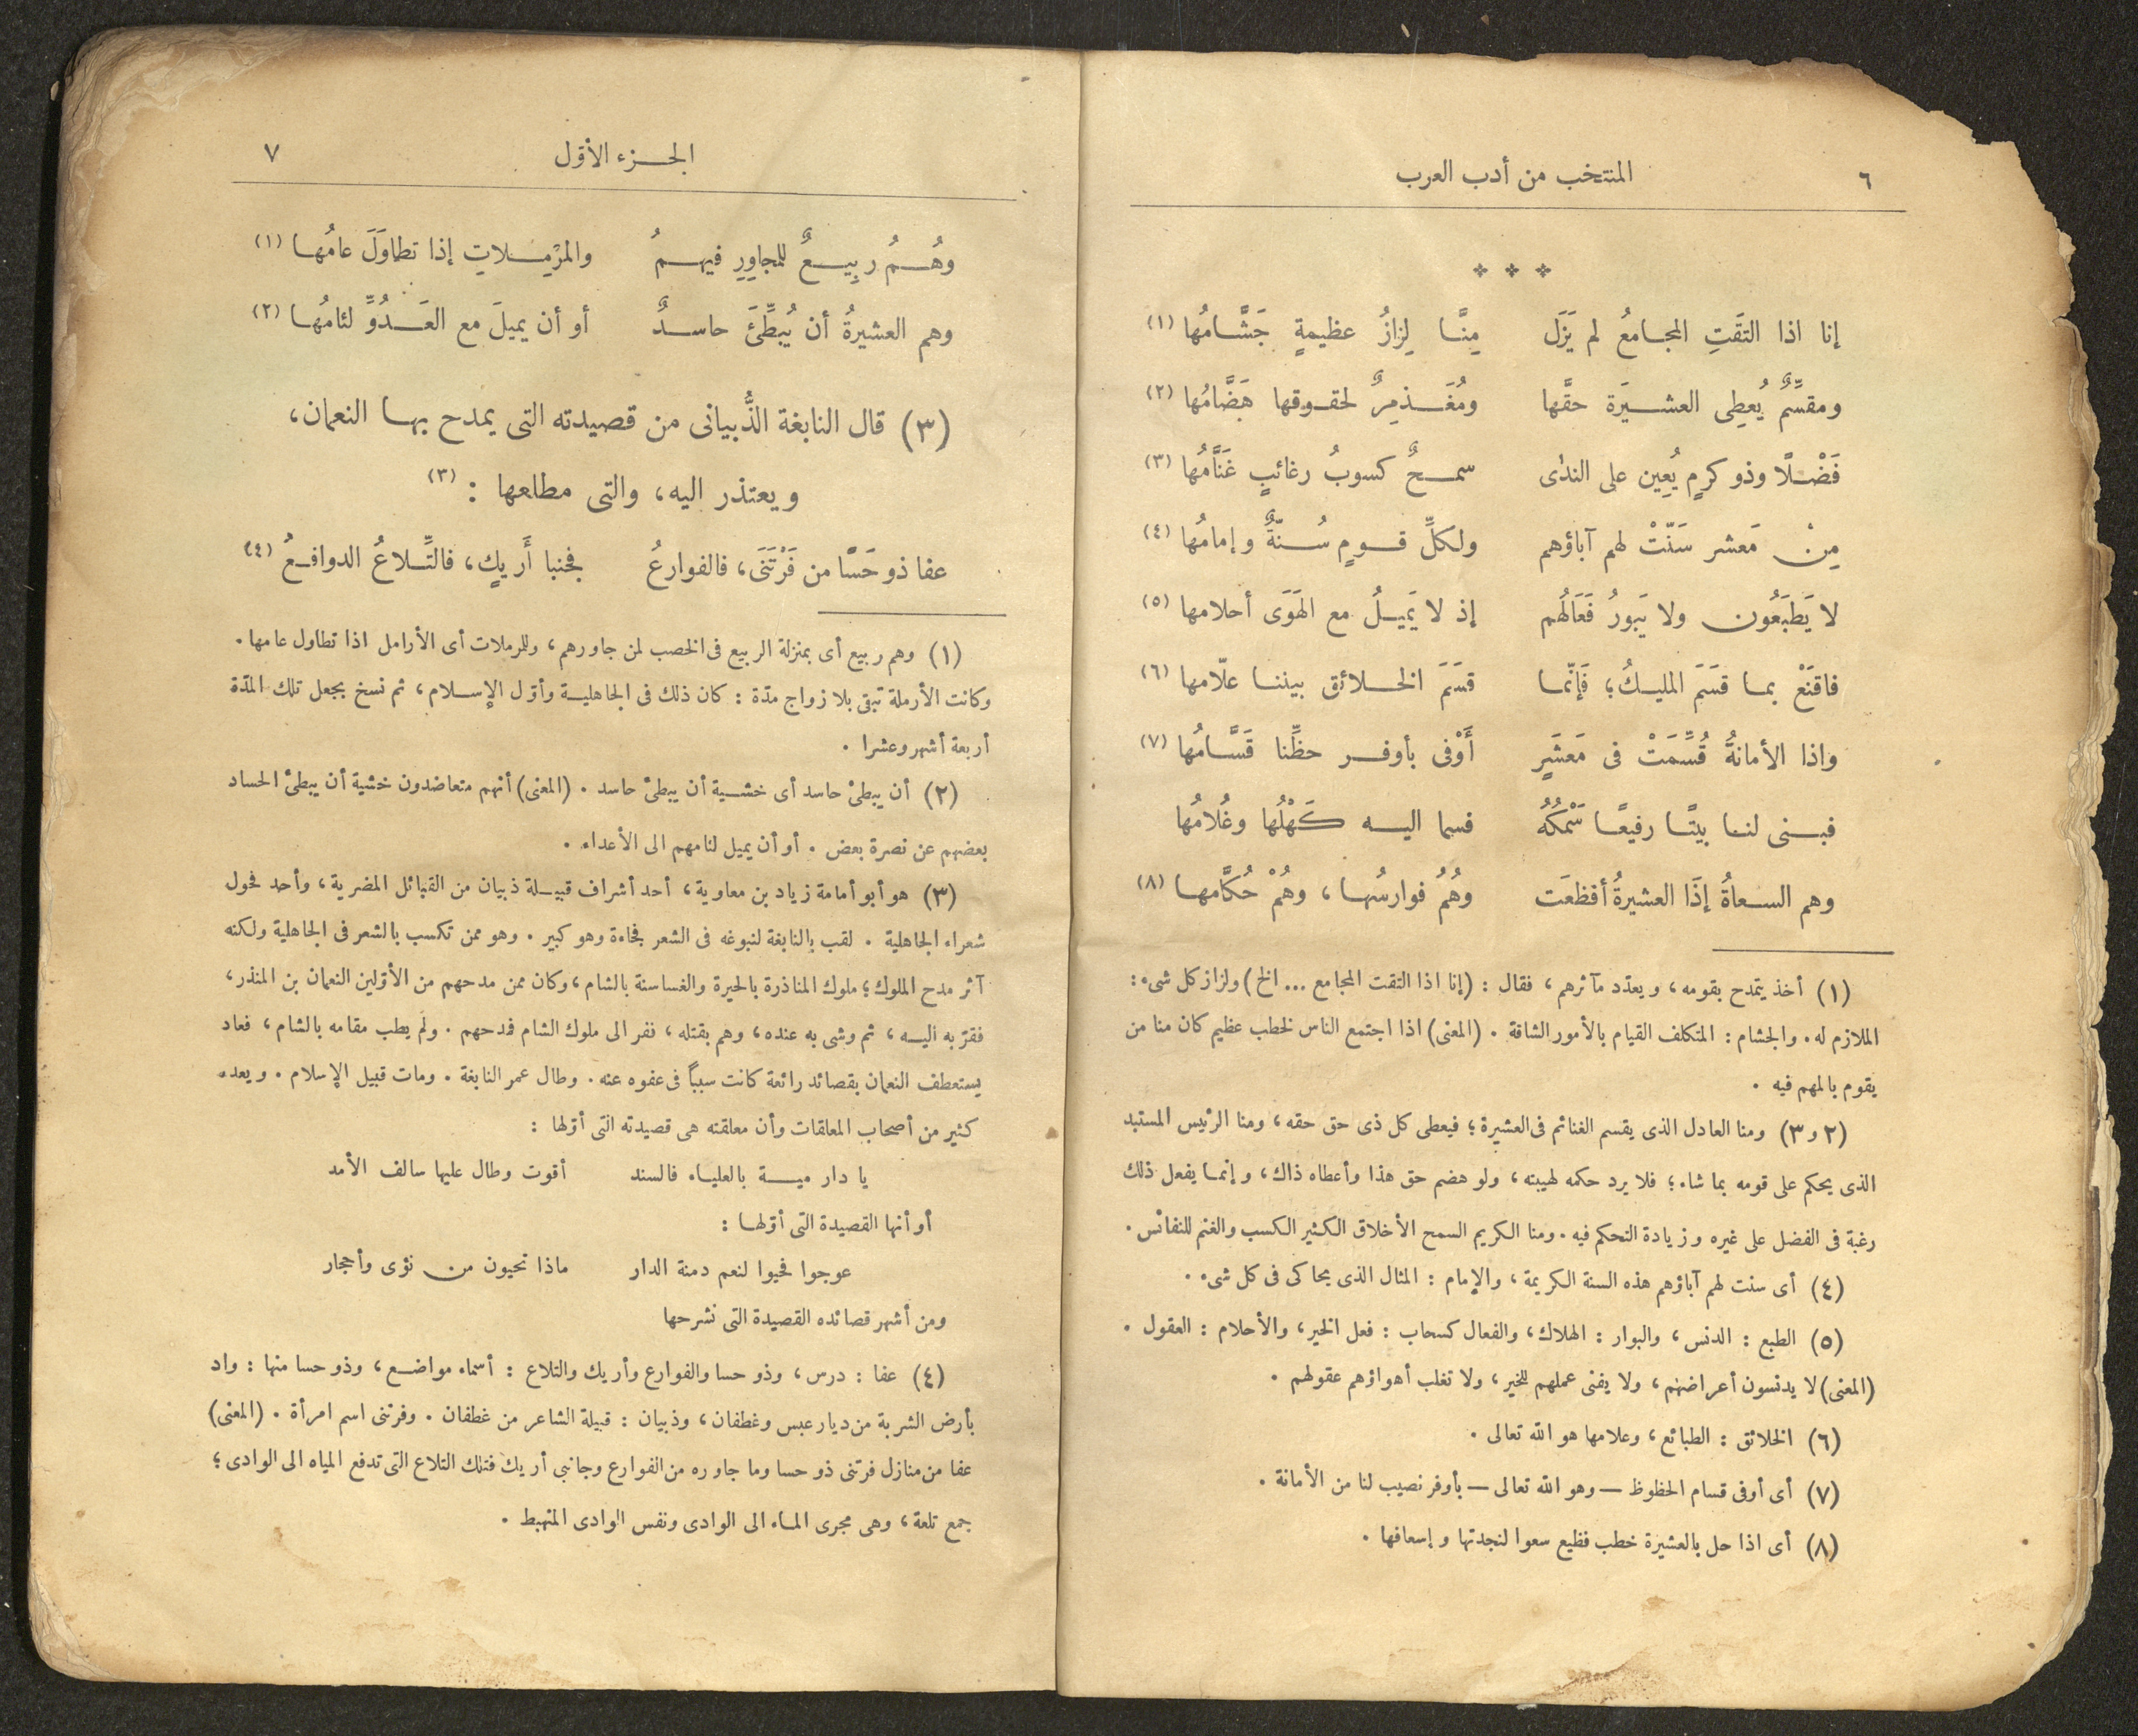 ٦
المنتخب من أدب العرب
* * *
إنا اذا التقَتِ المجامعُ لم يَزَل مِنَّا لِزازُ عظيمةٍ جَشَّامُها (١)
ومقسِّمٌ يُعطِى العشيرَة حقَّها ومُغَذمِرٌ لحقوقها هَضَّامُها (٢)
فَضْلًا وذو كرمٍ يُعِين على الندٰى سمحٌ كسوبُ رغائبٍ غَنَّامُها (٣)
مِنْ مَعشر سَنّتْ لهم آباؤهم ولكلِّ قومٍ سُنّةٌ وإمامُها (٤)
لا يَطبَعُون ولا يَبورُ فَعَالُهم إذ لا يَميلُ مع الهَوَى أحلامها (٥)
فاقنَعْ بما قسَمَ المليكُ؛ فَإنّما قسَمَ الخلائق بيننا علّامها (٦)
واذا الأمانةُ قُسِّمَتْ فى مَعشَرٍ أَوْفى بأوفر حظِّنا قَسَّامُها (٧)
فبنى لنا بيتًا رفيعًا سَمْكُهُ فسما اليه كَهْلُها وغُلامُها
وهم السعاةُ إذَا العشيرةُ أفظعَت وهُمُ فوارسُها، وهُمْ حُكَّامها (٨)
(١) أخذ يتمدح بقومه، ويعدّد مآثرهم، فقال : (إنا اذا التقت المجامع ... الخ) ولزاز كل شىء :
الملازم له. والجشام : المتكلف القيام بالأمور الشاقة . (المعنى) اذا اجتمع الناس لخطب عظيم كان منا من
يقوم بالمهم فيه .
(٢ و ٣) ومنا العادل الذى يقسم الغنائم فى العشيرة؛ فيعطى كل ذى حق حقه، ومنا الرئيس المستبد
الذى يحكم على قومه بما شاء؛ فلا يرد حكمه لهيبته، ولو هضم حق هذا وأعطاه ذاك، وإنما يفعل ذلك
رغبة فى الفضل على غيره وزيادة التحكم فيه . ومنا الكريم السمح الأخلاق الكثير الكسب والغنم للنفائس .
(٤) أى سنت لهم آباؤهم هذه السنة الكريمة، والإمام : المثال الذى يحاكى فى كل شىء .
(٥) الطبع : الدنس، والبوار : الهلاك، والفعال كسحاب : فعل الخير، والأحلام : العقول .
(المعنى) لا يدنسون أعراضهم، ولا يفنى عملهم للخير، ولا تغلب أهواؤهم عقولهم .
(٦) الخلائق : الطبائع، وعلامها هو الله تعالى .
(٧) أى أوفى قسام الحظوظ — وهو الله تعالى — بأوفر نصيب لنا من الأمانة .
(٨) أى اذا حل بالعشيرة خطب فظيع سعوا لنجدتها وإسعافها .
الجزء الأوّل
٧
وهُمُ ربِيعٌ للمجاوِرِ فيهمُ والمرْمِلاتِ إذا تطاوَلَ عامُها (١)
وهم العشيرةُ أن يُبطِّئَ حاسدٌ أو أن يميلَ مع العَدُوِّ لئامُها (٢)
(٣) قال النابغة الذُّبيانى من قصيدته التى يمدح بها النعمان،
ويعتذر اليه، والتى مطلعها : (٣)
عفا ذو حَسًا من فَرْتَنَى، فالفوارعُ فجنبا أَريكٍ، فالتِّلاعُ الدوافعُ (٤)
(١) وهم ربيع أى بمنزلة الربيع فى الخصب لمن جاورهم، وللرملات أى الأرامل اذا تطاول عامها .
وكانت الأرملة تبقى بلا زواج مدّة : كان ذلك فى الجاهلية وأوّل الإسلام، ثم نسخ بجعل تلك المدّة
أربعة أشهر وعشرا .
(٢) أن يبطئ حاسد أى خشية أن يبطئ حاسد . (المعنى) أنهم متعاضدون خشية أن يبطئ الحساد
بعضهم عن نصرة بعض . أو أن يميل لئامهم الى الأعداء .
(٣) هو أبو أمامة زياد بن معاوية، أحد أشراف قبيلة ذبيان من القبائل المضرية، وأحد فحول
شعراء الجاهلية . لقب بالنابغة لنبوغه فى الشعر فجاءة وهو كبير . وهو ممن تكسب بالشعر فى الجاهلية ولكنه
آثر مدح الملوك؛ ملوك المناذرة بالحيرة والغساسنة بالشام، وكان ممن مدحهم من الأوّلين النعمان بن المنذر،
فقرّبه اليه، ثم وشى به عنده، وهم بقتله، ففر الى ملوك الشام فمدحهم . ولم يطب مقامه بالشام، فعاد
يستعطف النعمان بقصائد رائعة كانت سببا فى عفوه عنه . وطال عمر النابغة . ومات قبيل الإسلام . ويعده
كثير من أصحاب المعلقات وأن معلقته هى قصيدته التى أوّلها :
يا دار مية بالعلياء فالسند أقوت وطال عليها سالف الأمد
أو أنها القصيدة التى أوّلها :
عوجوا فحيوا لنعم دمنة الدار ماذا تحيون من نؤى وأحجار
ومن أشهر قصائده القصيدة التى نشرحها
(٤) عفا : درس، وذو حسا والفوارع وأريك والتلاع : أسماء مواضع، وذو حسا منها : واد
بأرض الشربة من ديار عبس وغطفان، وذبيان : قبيلة الشاعر من غطفان . وفرتنى اسم امرأة . (المعنى)
عفا من منازل فرتنى ذو حسا وما جاوره من الفوارع وجانبى أريك فتلك التلاع التى تدفع المياه الى الوادى؛
جمع تلعة، وهى مجرى الماء الى الوادى ونفس الوادى المنهبط .